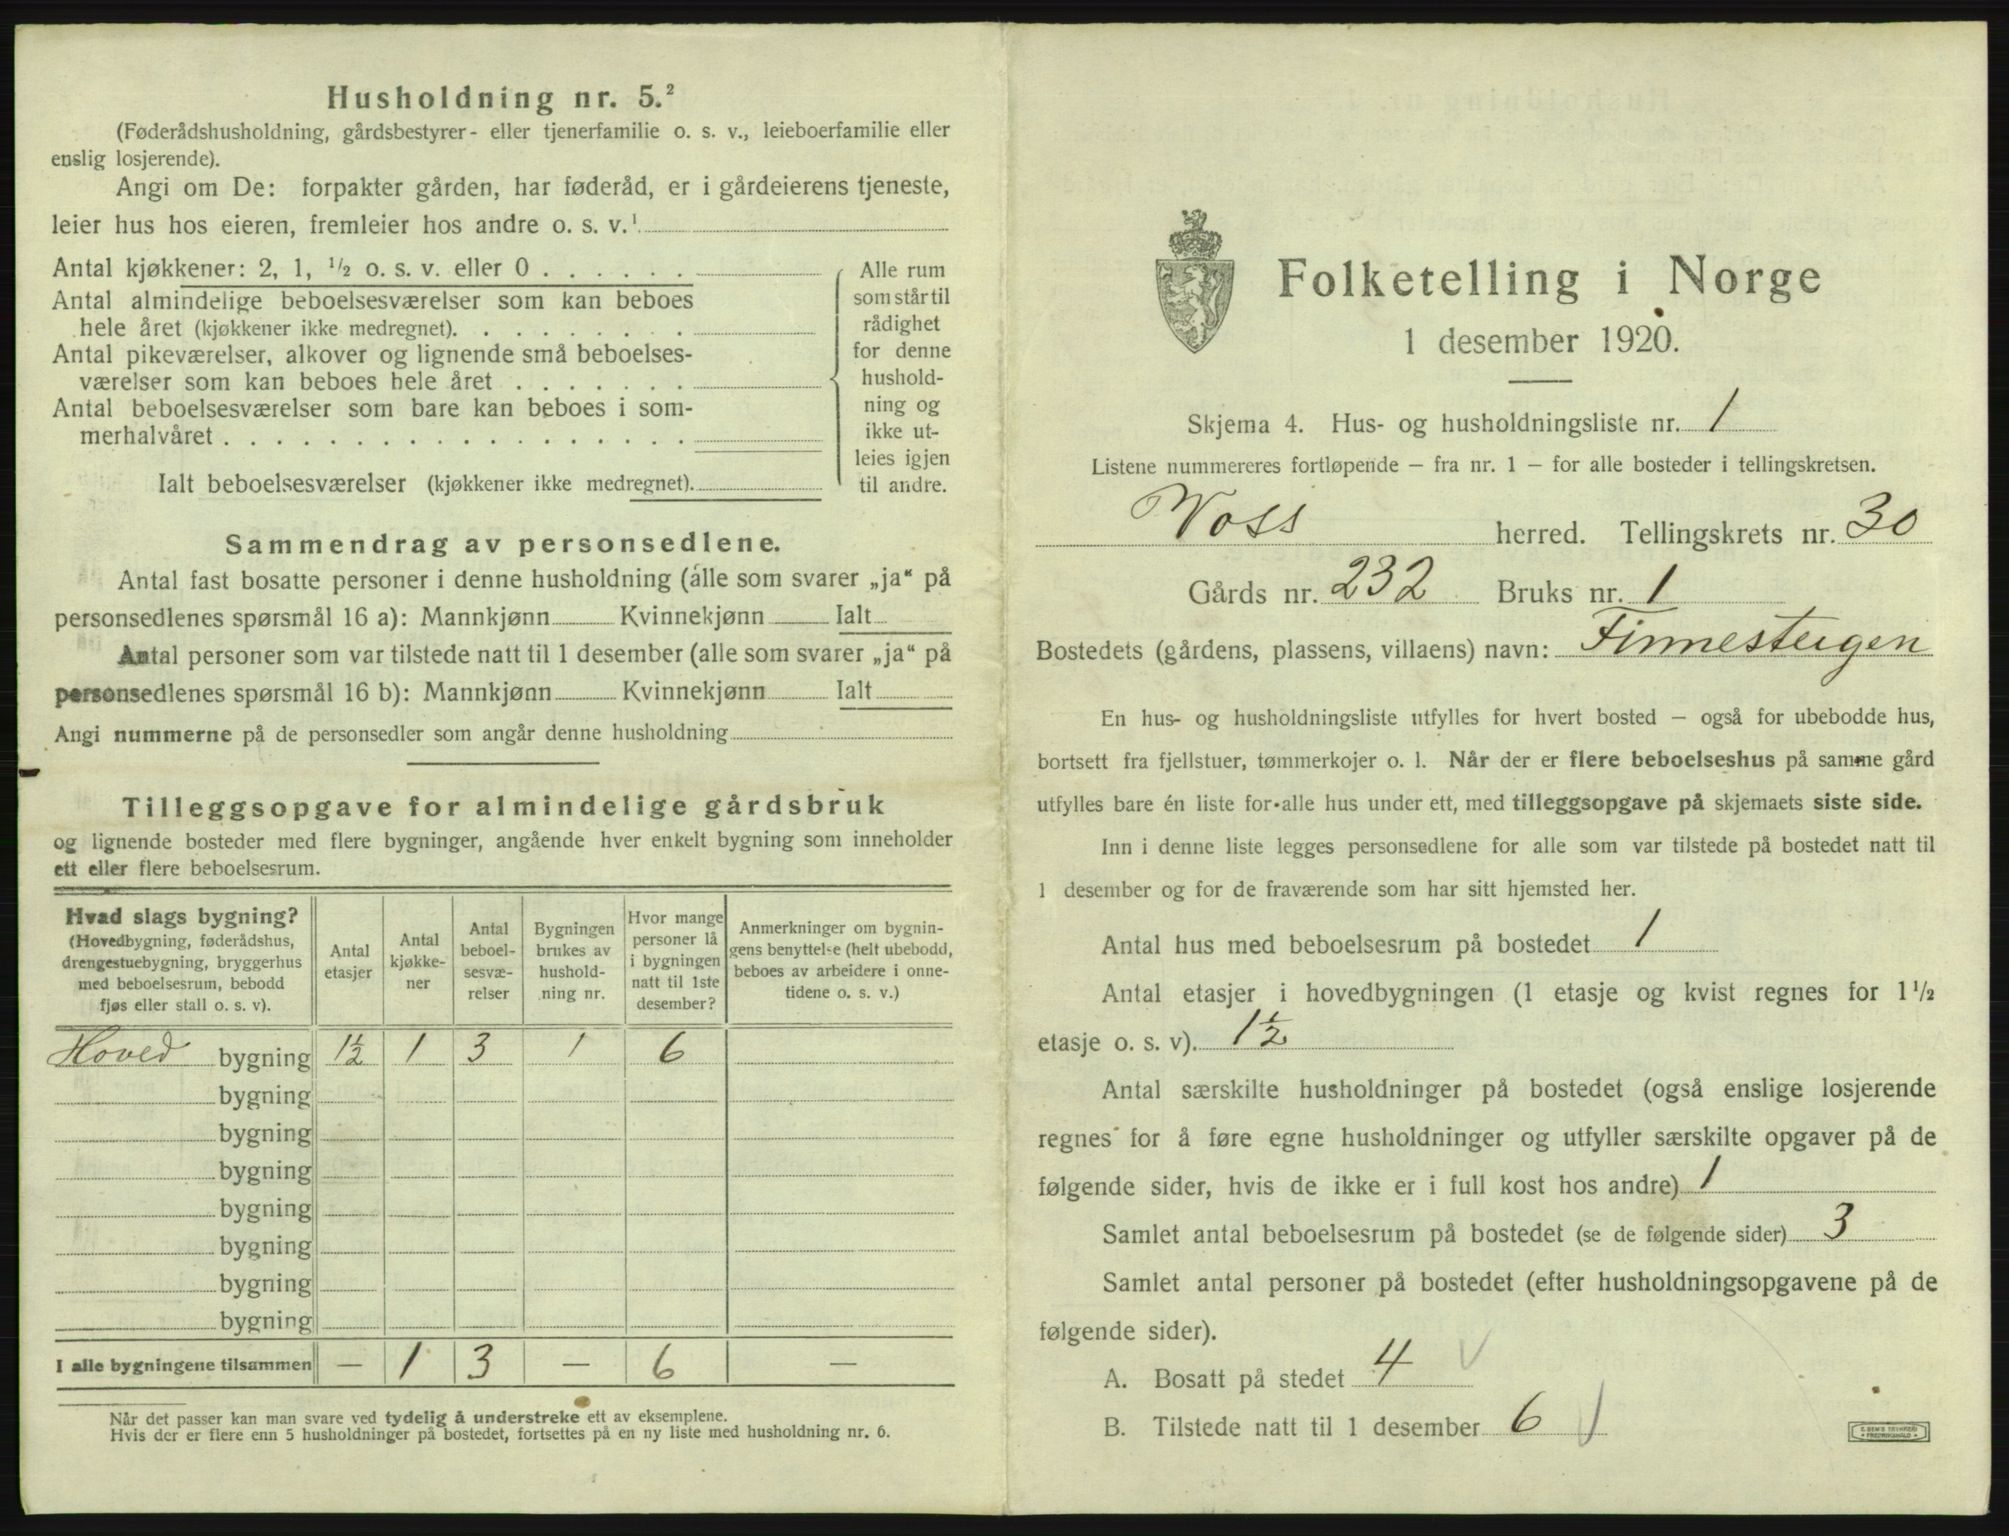 Husholdning nr. 5.²
(Føderådshusholdning, gårdsbestyrer- eller tjenerfamilie o. s. v., leieboerfamilie eller
enslig losjerende).
Angi om De: forpakter gården, har føderåd, er i gårdeierens tjeneste,
leier hus hos eieren, fremleier hos andre o. s. v.¹
Antal kjøkkener: 2, 1, ½ o. s. v. eller 0 . . . . . .
Antal almindelige beboelsesværelser som kan beboes
hele året (kjøkkener ikke medregnet). . . . . . . . .
Antal pikeværelser, alkover og lignende små beboelses-
værelser som kan beboes hele året . . . . . . .
Antal beboelsesværelser som bare kan beboes i som-
merhalvåret . . . . . . . . . . . . . . . . . .
Ialt beboelsesværelser (kjøkkener ikke medregnet).
Alle rum
som står til
rådighet
for denne
hushold-
ning og
ikke ut-
leies igjen
til andre.
Sammendrag av personsedlene.
Antal fast bosatte personer i denne husholdning (alle som svarer „ja“ på
personsedlenes spørsmål 16 a): Mannkjønn Kvinnekjønn Ialt
Antal personer som var tilstede natt til 1 desember (alle som svarer „ja“ på
personsedlenes spørsmål 16 b): Mannkjønn Kvinnekjønn Ialt
Angi nummerne på de personsedler som angår denne husholdning
Tilleggsopgave for almindelige gårdsbruk
og lignende bosteder med flere bygninger, angående hver enkelt bygning som inneholder
ett eller flere beboelsesrum.
Hvad slags bygning?
(Hovedbygning, føderådshus,
drengestuebygning, bryggerhus
med beboelsesrum, bebodd
fjøs eller stall o. s. v).
Antal
etasjer
Antal
kjøkke-
ner
Antal
beboel-
sesvæ-
relser
Bygningen
brukes av
hushold-
ning nr.
Hvor mange
personer lå
i bygningen
natt til 1ste
desember?
Anmerkninger om bygnin-
gens benyttelse (helt ubebodd,
beboes av arbeidere i onne-
tidene o. s. v.)
Hoved bygning 1½ 1 3 1 6
bygning
bygning
bygning
bygning
bygning
bygning
bygning
I alle bygningene tilsammen — 1 3 — 6 —
Når det passer kan man svare ved tydelig å understreke ett av eksemplene.
Hvis der er flere enn 5 husholdninger på bostedet, fortsettes på en ny liste med husholdning nr. 6.
Folketelling i Norge
1 desember 1920.
Skjema 4. Hus- og husholdningsliste nr. 1
Listene nummereres fortløpende — fra nr. 1 — for alle bosteder i tellingskretsen.
Voss herred. Tellingskrets nr. 30
Gårds nr. 232 Bruks nr. 1
Bostedets (gårdens, plassens, villaens) navn: Finnesteigen
En hus- og husholdningsliste utfylles for hvert bosted — også for ubebodde hus,
bortsett fra fjellstuer, tømmerkojer o. l. Når der er flere beboelseshus på samme gård
utfylles bare én liste for alle hus under ett, med tilleggsopgave på skjemaets siste side.
Inn i denne liste legges personsedlene for alle som var tilstede på bostedet natt til
1 desember og for de fraværende som har sitt hjemsted her.
Antal hus med beboelsesrum på bostedet 1
Antal etasjer i hovedbygningen (1 etasje og kvist regnes for 1½
etasje o. s. v). 1½
Antal særskilte husholdninger på bostedet (også enslige losjerende
regnes for å føre egne husholdninger og utfyller særskilte opgaver på de
følgende sider, hvis de ikke er i full kost hos andre) 1
Samlet antal beboelsesrum på bostedet (se de følgende sider) 3
Samlet antal personer på bostedet (efter husholdningsopgavene på de
følgende sider).
A. Bosatt på stedet 4
B. Tilstede natt til 1 desember 6